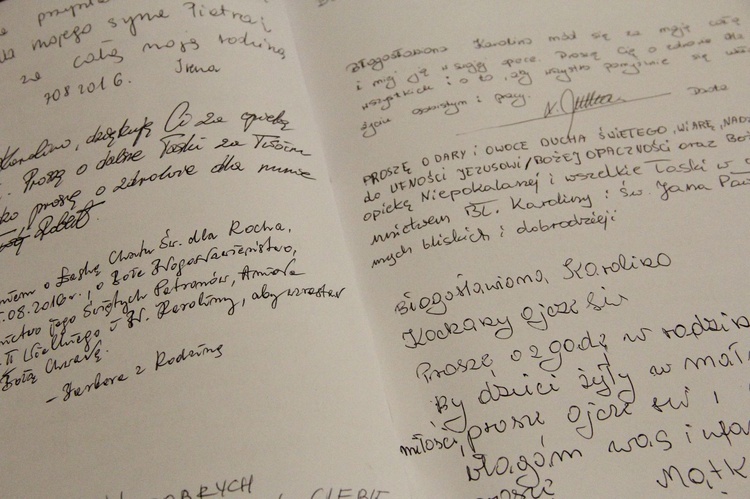 mojego syna Pietra i
za całą moją rodzinę
708 2016. Irena
Karolino, dziękuję Ci za opiekę
Proszę o dalsze Łaski za Twoim
proszę o zdrowie dla mnie
Robert
o Łaskę Chrztu Św. dla Rocha,
.08.2016r., o Boże Błogosławieństwo,
Jego Świętych Patronów,
II Wielkiego i Bł. Karoliny, aby wzrastał
Bożą Chwałę.
- Barbara z Rodziną
DOBRYCH
CIEBIE
Błogosławiona Karolino módl się za moją całą
i miej ją w swojej opiece. Proszę Cię o zdrowie dla
wszystkich i o to, aby wszystko pomyślnie się
życiu osobistym i pracy.
PROSZĘ O DARY I OWOCE DUCHA ŚWIĘTEGO, WIARĘ, NADZ
do UFNOŚCI JEZUSOWI/BOŻEJ OPACZNOŚCI ORAZ BO
opiekę Niepokalanej i wszelkie Łaski w
BŁ. Karoliny i św. Jana Paw
mych bliskich i dobrodziei.
Błogosławiona Karolino
Kochany Ojcze Św
Proszę o zgodę w rodzin
By dzieci żyły w mał
miłości, proszę Ojcze Św i
błagam was i
Matk